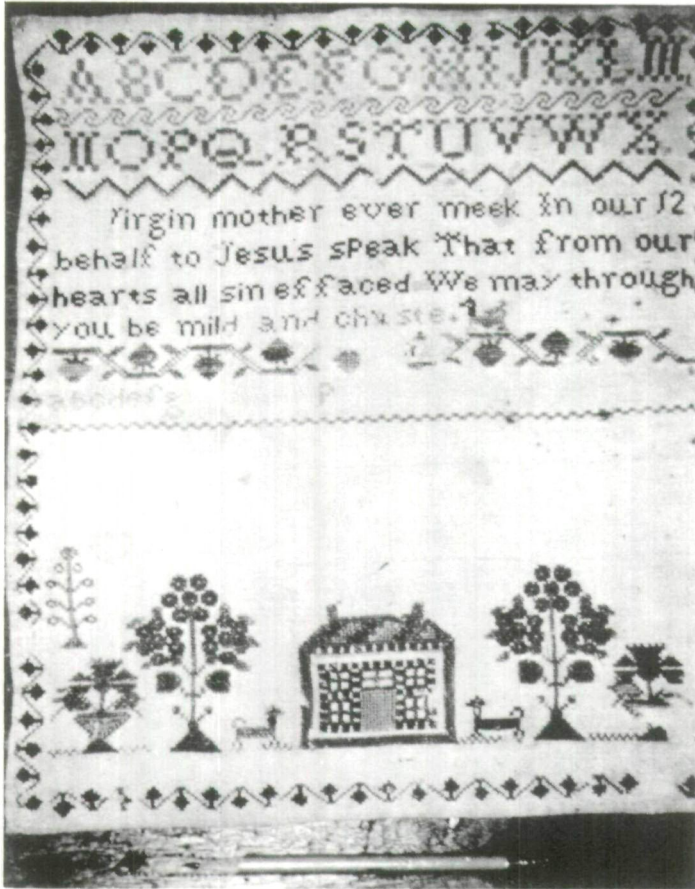 A B C D E F G H I J K L M
N O P Q R S T U V W X
Virgin mother ever meek In our 12
behalf to Jesus sPeak That from our
hearts all sin effaced We may through
you be mild and chaste.
abcdefg P